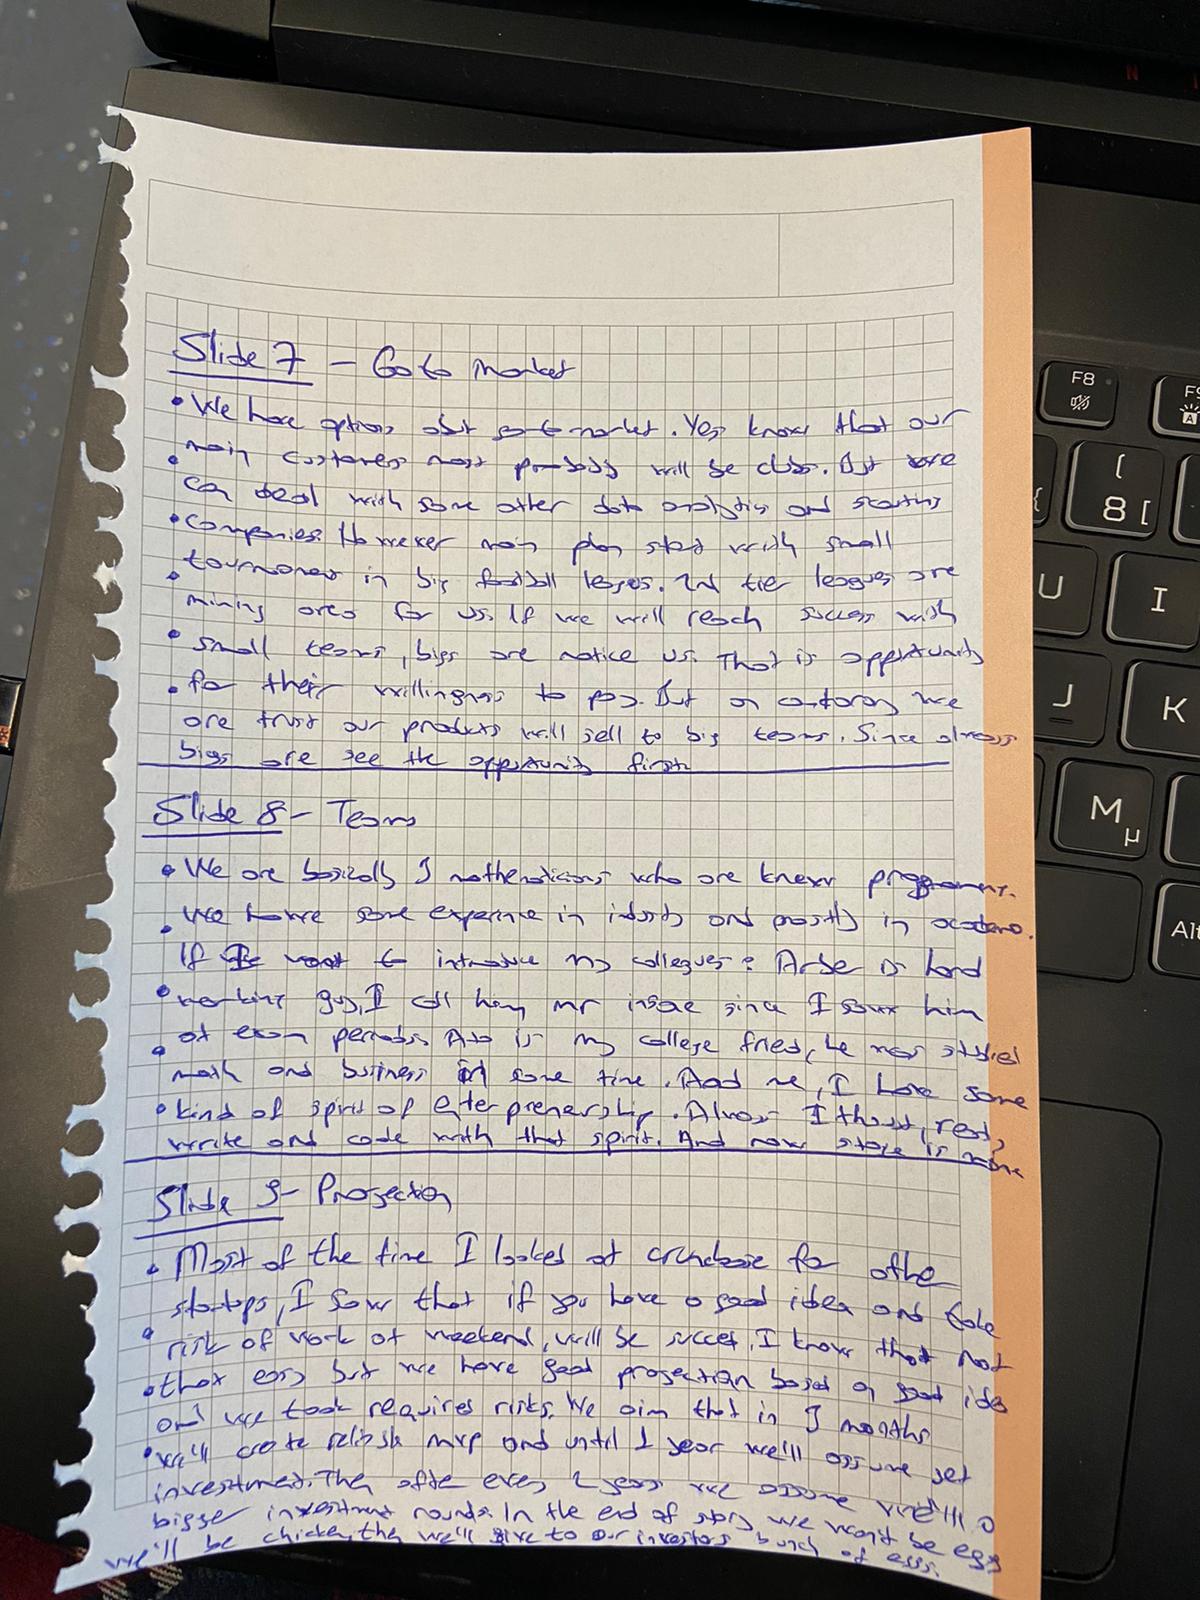 Slide 7 - Go to Market
• We have options abut go to market. Yes, know that our
• main costumers most probably will be clubs. But we
can deal with some other data analytics and scouting
• companies. However main plan start with small
tournoment in big football leages. 2nd tier leagues are
• mining area for us. If we will reach success with
• small teams, bigs are notice us. That is opportunity
• for their willingness to pay. But on contorary we
are trust our products will sell to big teams. Since always
bigs are see the opportunity first.
Slide 8 - Team
• We are basically 3 mathematicians who are knew programmer.
• we have some experince in idustry and mostly in academa.
If I want to introduce my collegues: is hard
• working guy, I call him mr insae since I saw him
• at exam periods. is my college fried, he was studied
math and business in same time. And me, I have some
• kind of spirit of enterprenership. Always I thought, read,
write and code with that spirit. And now stage is mine
Slide 9 - Projection
• Most of the time I looked at crunchbase for other
startups, I saw that if you have a good idea and take
• risk of work at weekend, will be succes. I know that not
• that easy but we have good projection based on good idea
and we took requires risks. We aim that in 3 months
• we'll create reliable mvp and until 1 year we'll assume get
investment. Then after every 2 years we assume we'll a
bigger investment rounds. In the end of story we won't be egg
we'll be chicken, then we'll give to our investors bunch of eggs.
F8
8 [
U
I
J
K
M
µ
Alt